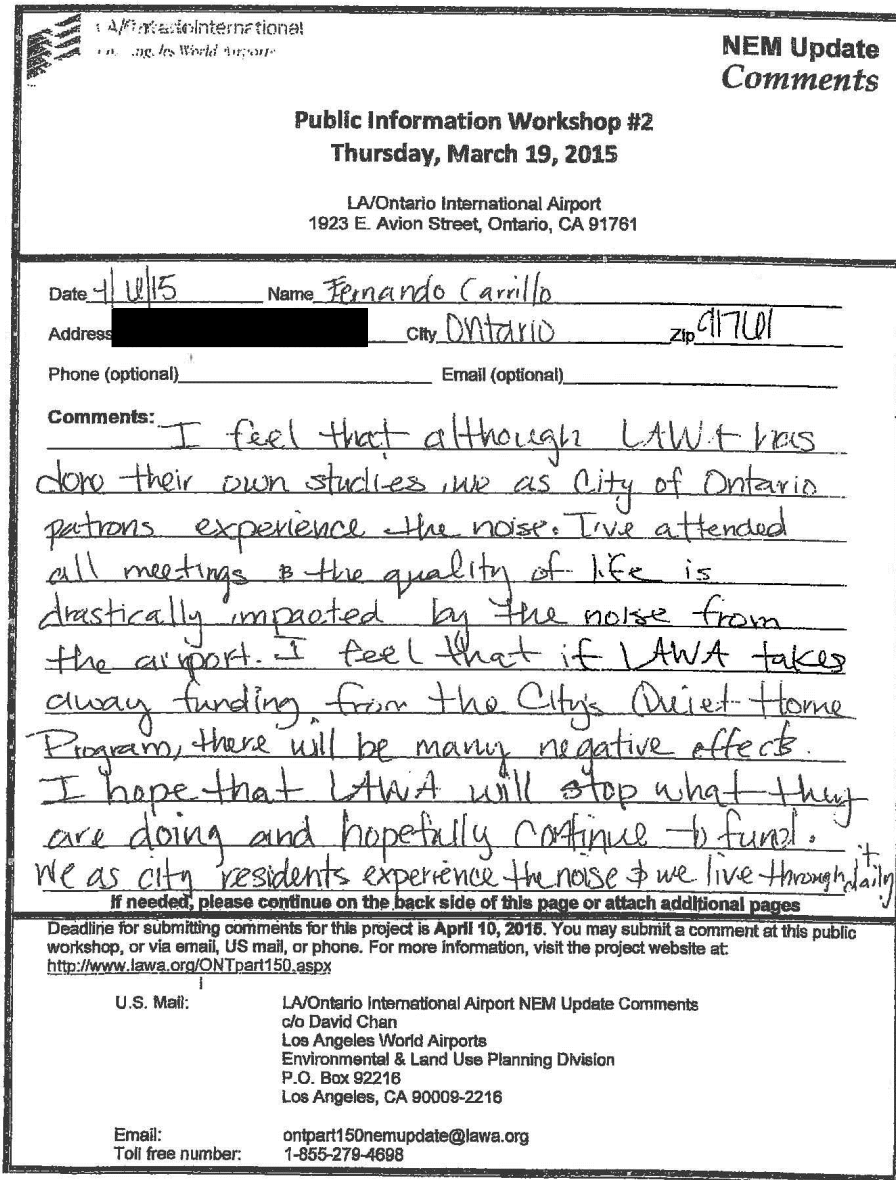 LA/Ontario International
Los Angeles World Airports
NEM Update
Comments
Public Information Workshop #2
Thursday, March 19, 2015
LA/Ontario International Airport
1923 E. Avion Street, Ontario, CA 91761
Date 4/6/15 Name Fernando Carrillo
Address City Ontario Zip 91761
Phone (optional) Email (optional)
Comments:
I feel that although LAWA has
done their own studies, we as City of Ontario
patrons experience the noise. I've attended
all meetings & the quality of life is
drastically impacted by the noise from
the airport. I feel that if LAWA takes
away funding from the City's Quiet Home
Program, there will be many negative effects.
I hope that LAWA will stop what they
are doing and hopefully continue to fund.
We as city residents experience the noise & we live through it daily
If needed, please continue on the back side of this page or attach additional pages
Deadline for submitting comments for this project is April 10, 2015. You may submit a comment at this public
workshop, or via email, US mail, or phone. For more information, visit the project website at:
http://www.lawa.org/ONTpart150.aspx
U.S. Mail: LA/Ontario International Airport NEM Update Comments
c/o David Chan
Los Angeles World Airports
Environmental & Land Use Planning Division
P.O. Box 92216
Los Angeles, CA 90009-2216
Email: ontpart150nemupdate@lawa.org
Toll free number: 1-855-279-4698